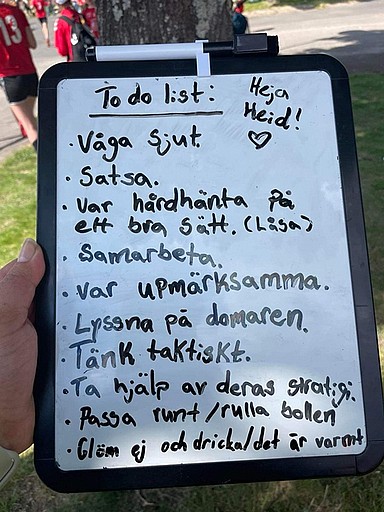 13
To do list:
Heja
Heid!
· Våga sjut.
· Satsa.
· Var hårdhänta på
ett bra sätt. (Låsa)
· Samarbeta.
· Var upmärksamma.
· Lyssna på domaren.
· Tänk taktiskt.
· Ta hjälp av deras stratigi.
· Passa runt/rulla bollen
· Glöm ej och dricka/det är varmt